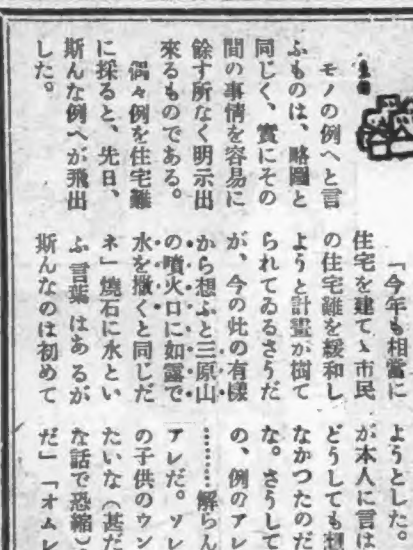 モノの例へと言
ふものは、略圖と
同じく、實にその
間の事情を容易に
餘す所なく明示出
來るものである。
偶々例を住宅難
に採ると、先日、
斯んな例へが飛出
した。
「今年も相當に
住宅を建てゝ市民
の住宅難を緩和し
ようと計畫が樹て
られてゐるさうだ
が、今の此の有樣
から想ふと三原山
の噴火口に如露で
水を撒くと同じだ
ネ」燒石に水とい
ふ言葉はあるが
斯んなのは初めて
ようとした。
が本人に言は
どうしても
なかつたのだ
な。さうして
の、例のアレ
………解らん
アレだ。ソレ
の子供のウン
たいな（甚だ
な話で恐縮）
だ」「オムレ